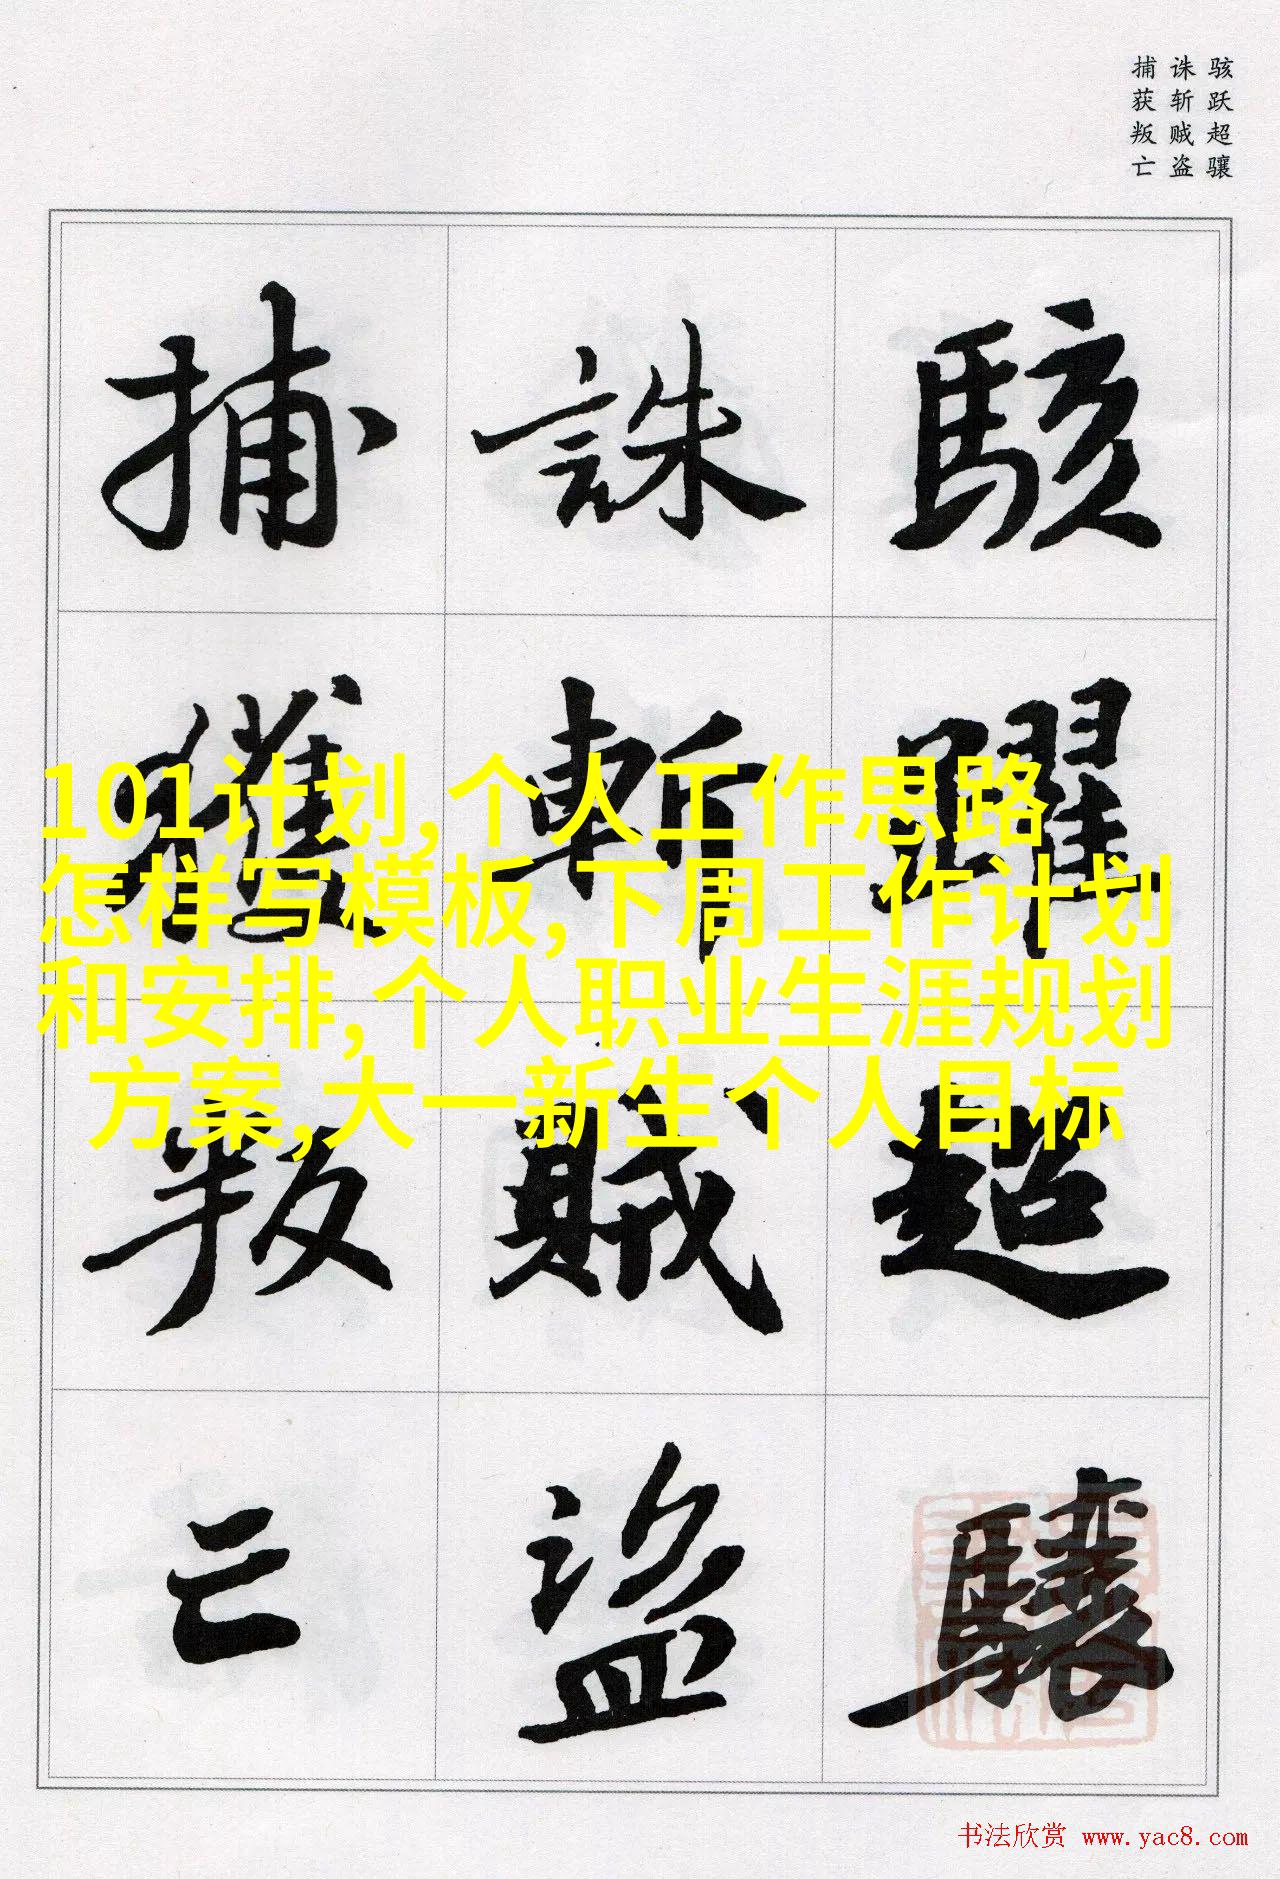 骇跃超骧
诛斩贼盗
捕获叛亡
駭躍超驤
誅斬賊盜
捕獲叛亡
101计划,个人工作思路
怎样写模板,下周工作计划
和安排,个人职业生涯规划
方案,大一新生个人目标
书法欣赏 www.yac8.com